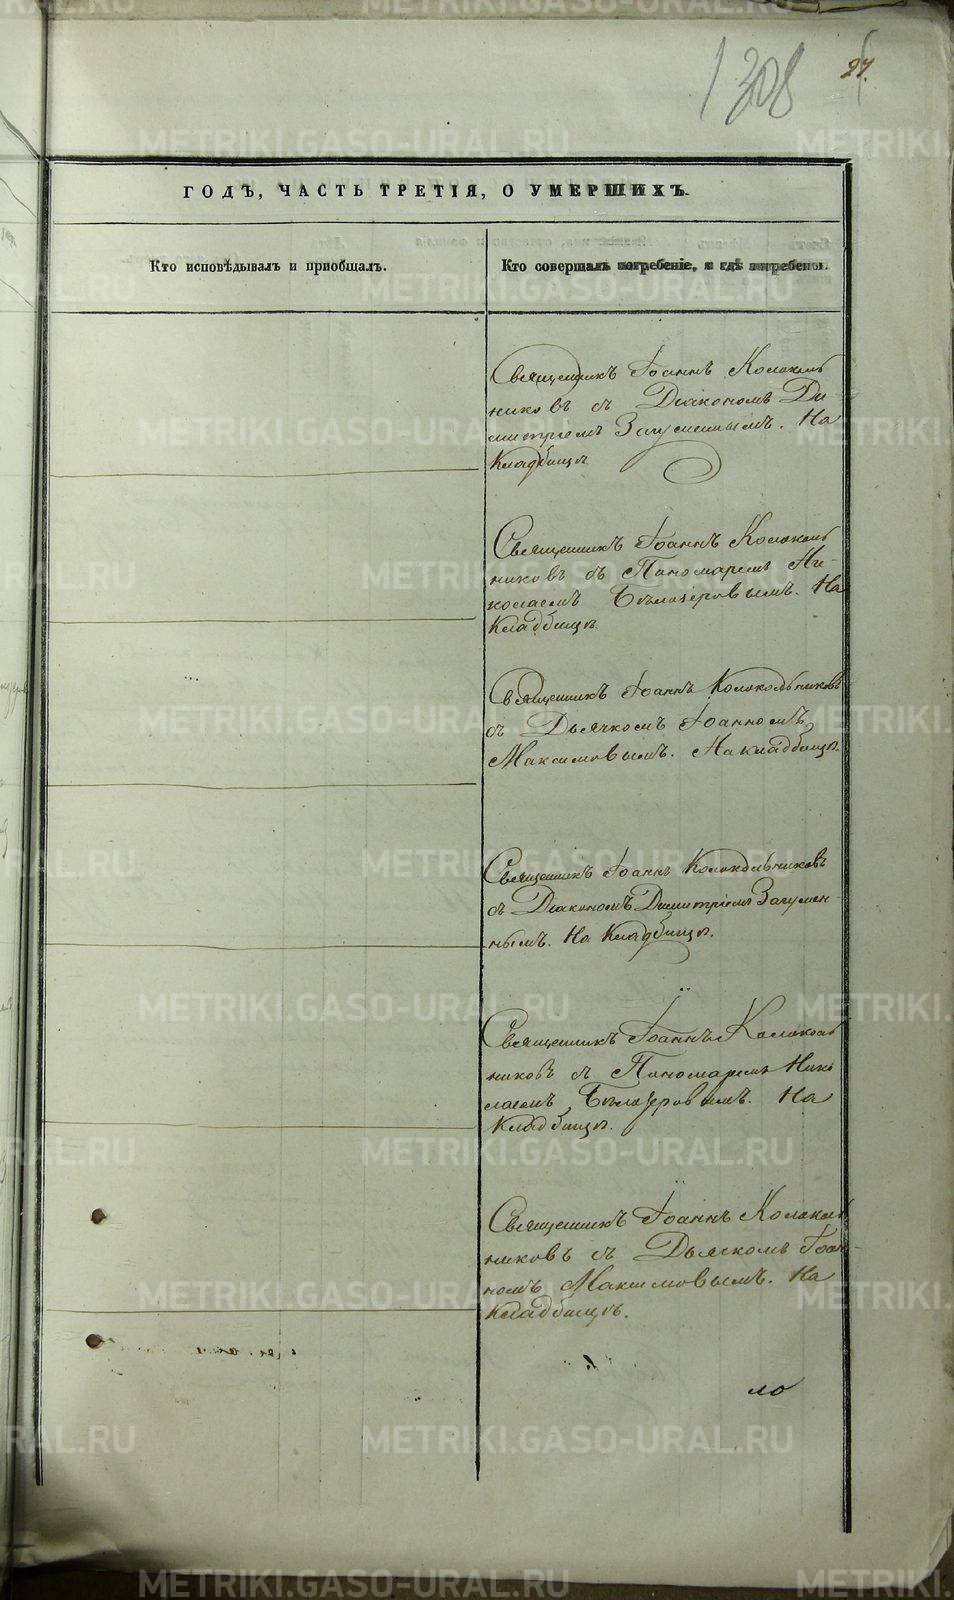 1308
27.
ГОДЪ, ЧАСТЬ ТРЕТІЯ, О УМЕРШИХЪ.
Кто исповѣдывалъ и пріобщалъ.
Кто совершалъ погребеніе, и гдѣ погребены.
Священникъ Іоаннъ Колоколь
никовъ съ Діакономъ Ди-
митріемъ Загуменнымъ. На
Кладбищѣ
Священникъ Іоаннъ Колоколь
никовъ съ Пономаремъ Ни-
колаемъ Бѣлозеровымъ. На
Кладбищѣ.
Священникъ Іоаннъ Колокольниковъ
съ Дьячкомъ Іоанномъ
Максимовымъ. На кладбищѣ.
Священникъ Іоаннъ Колокольниковъ
съ Діакономъ Димитріемъ Загумен-
нымъ. На Кладбищѣ.
Священникъ Іоаннъ Колоколь
никовъ съ Пономаремъ Нико
лаемъ Бѣлозеровымъ. На
Кладбищѣ.
Священникъ Іоаннъ Колоколь
никовъ съ Дьячкомъ Іоан-
номъ Максимовымъ. На
Кладбищѣ.
ло
METRIKI.GASO-URAL.RU